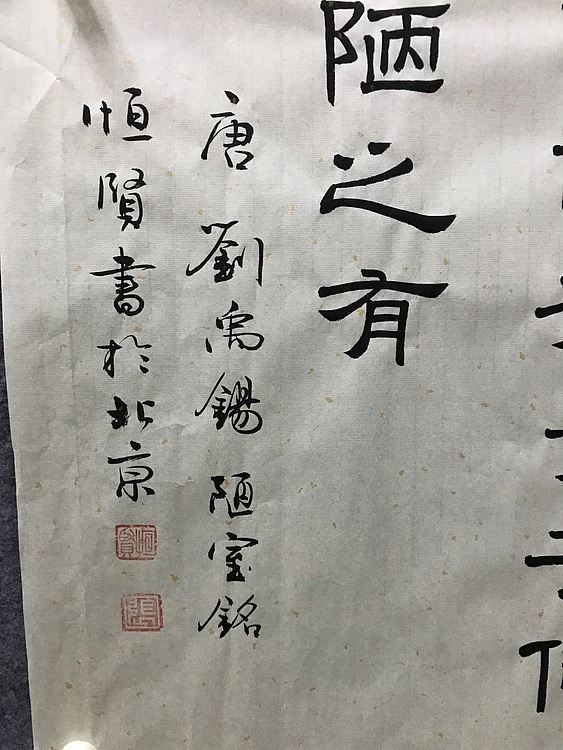 陋之有
唐劉禹錫陋室銘
恒賢書於北京
恒賢